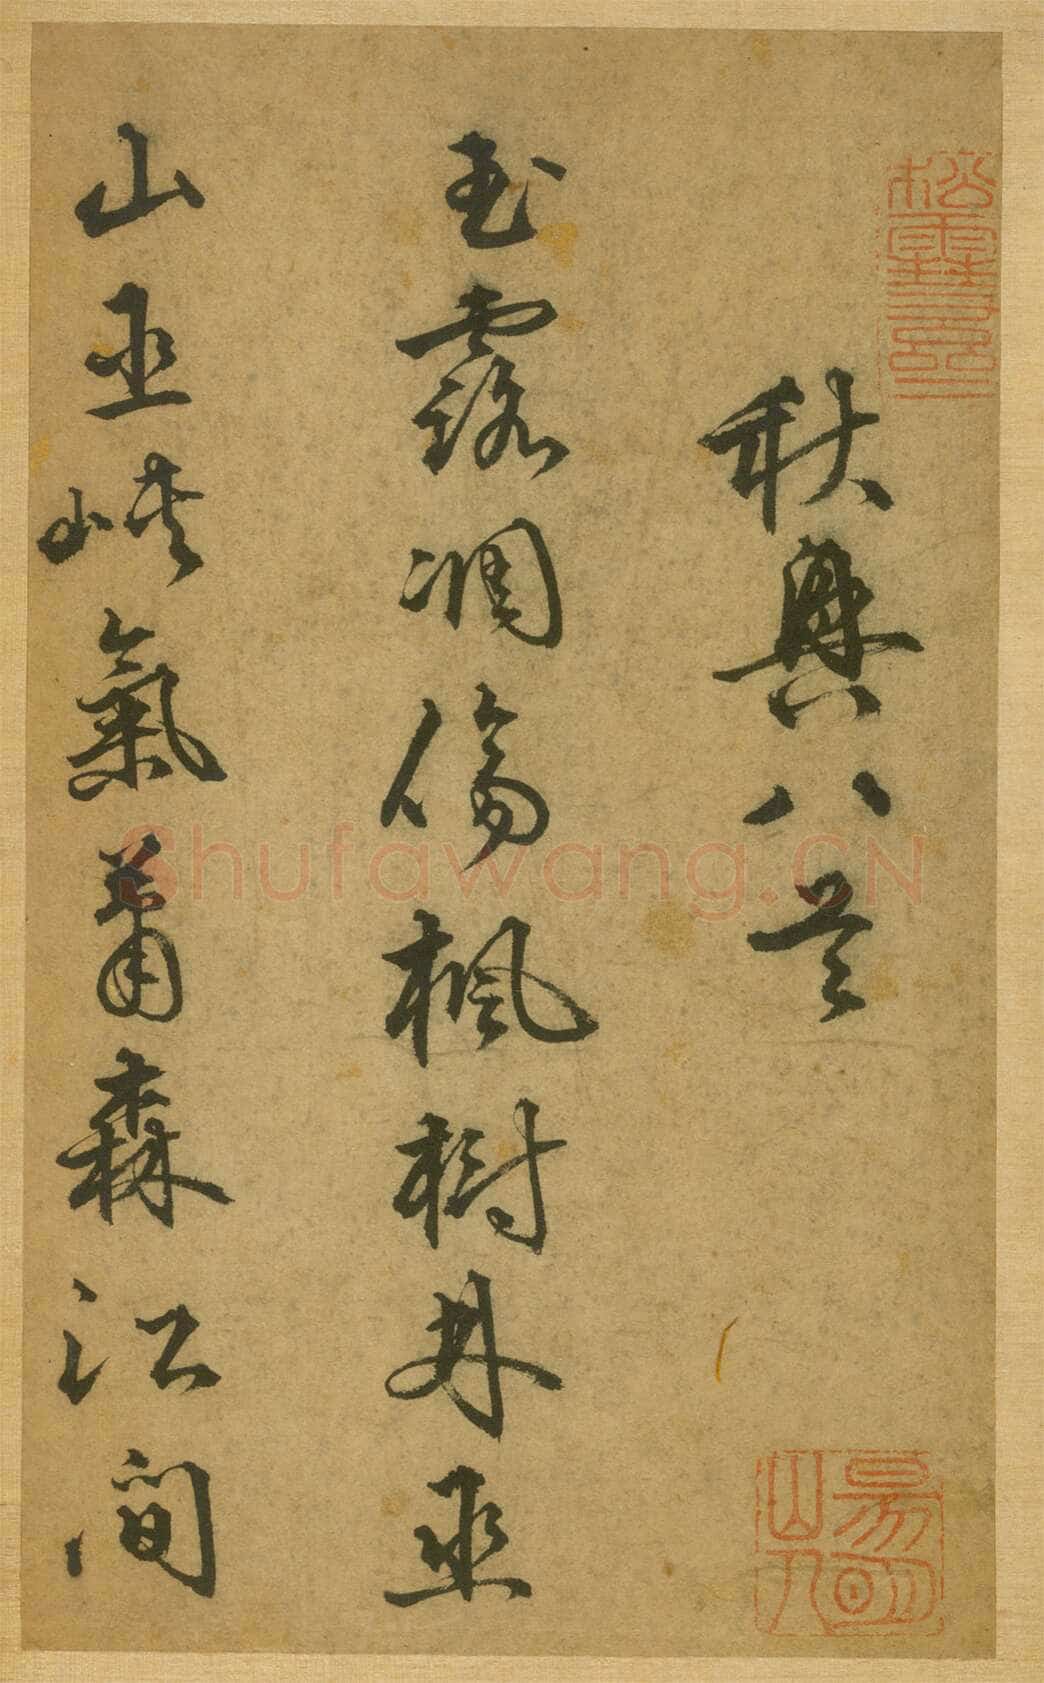 秋興八首
玉露凋傷楓樹丹巫
山巫峽氣蕭森江間
Shufawang.CN